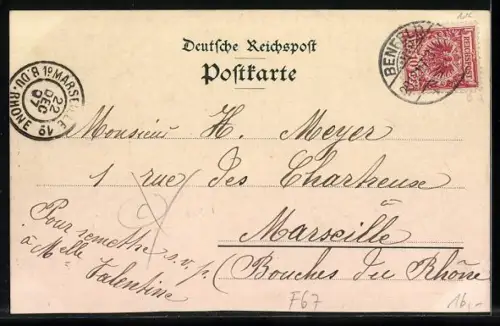 Deutsche Reichspost
Postkarte
BENFELD
MARSEILLE
B.DU-RHONE
22
DEC
97
Monsieur H. Meyer
1 rue des Chartreuse
à
Marseille
(Bouches du Rhône
Pour remettre s.v.p.
à Melle
Valentine
F67
16,-